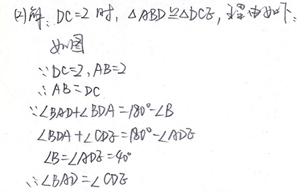 (2)解：DC=2时，△ABD≌△DCE，理由如下：
如图
∵DC=2，AB=2
∴AB=DC
∵∠BAD+∠BDA=180°-∠B
∠BDA+∠CDE=180°-∠ADE
∠B=∠ADE=40°
∴∠BAD=∠CDE